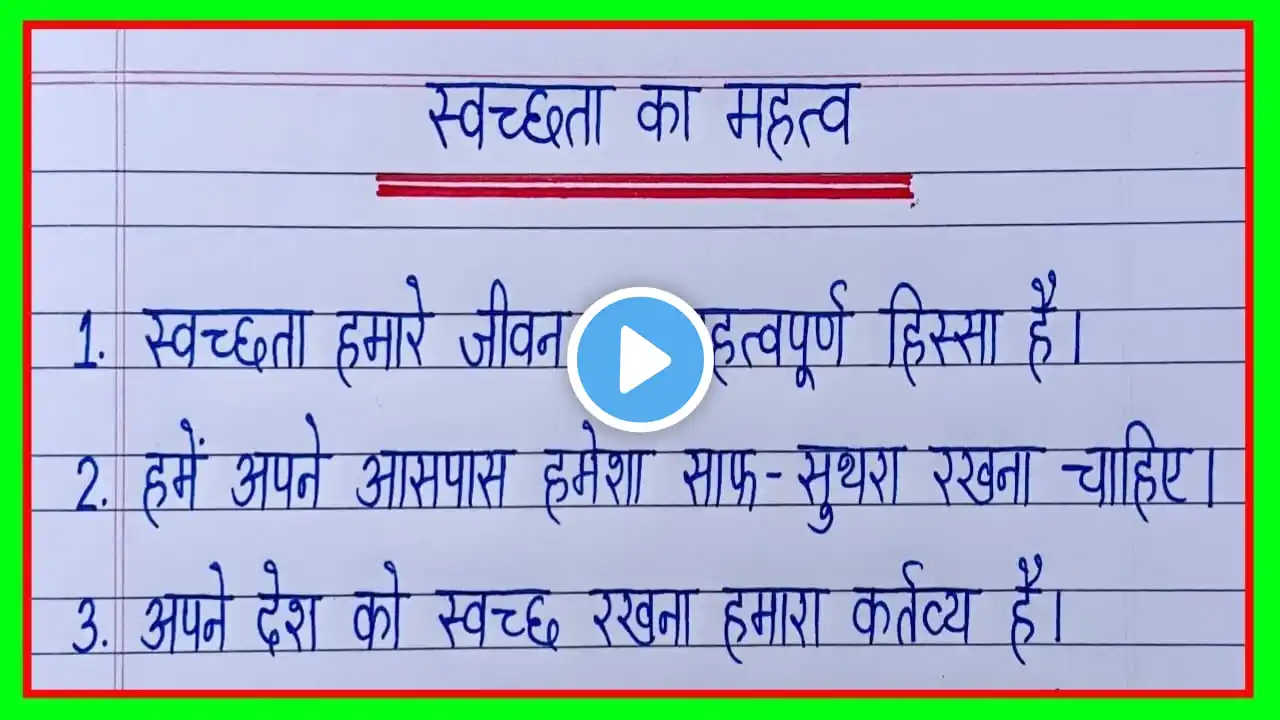 स्वच्छता का महत्व
1. स्वच्छता हमारे जीवन हत्वपूर्ण हिस्सा है।
2. हमें अपने आसपास हमेशा साफ-सुथरा रखना चाहिए।
3. अपने देश को स्वच्छ रखना हमारा कर्तव्य है।